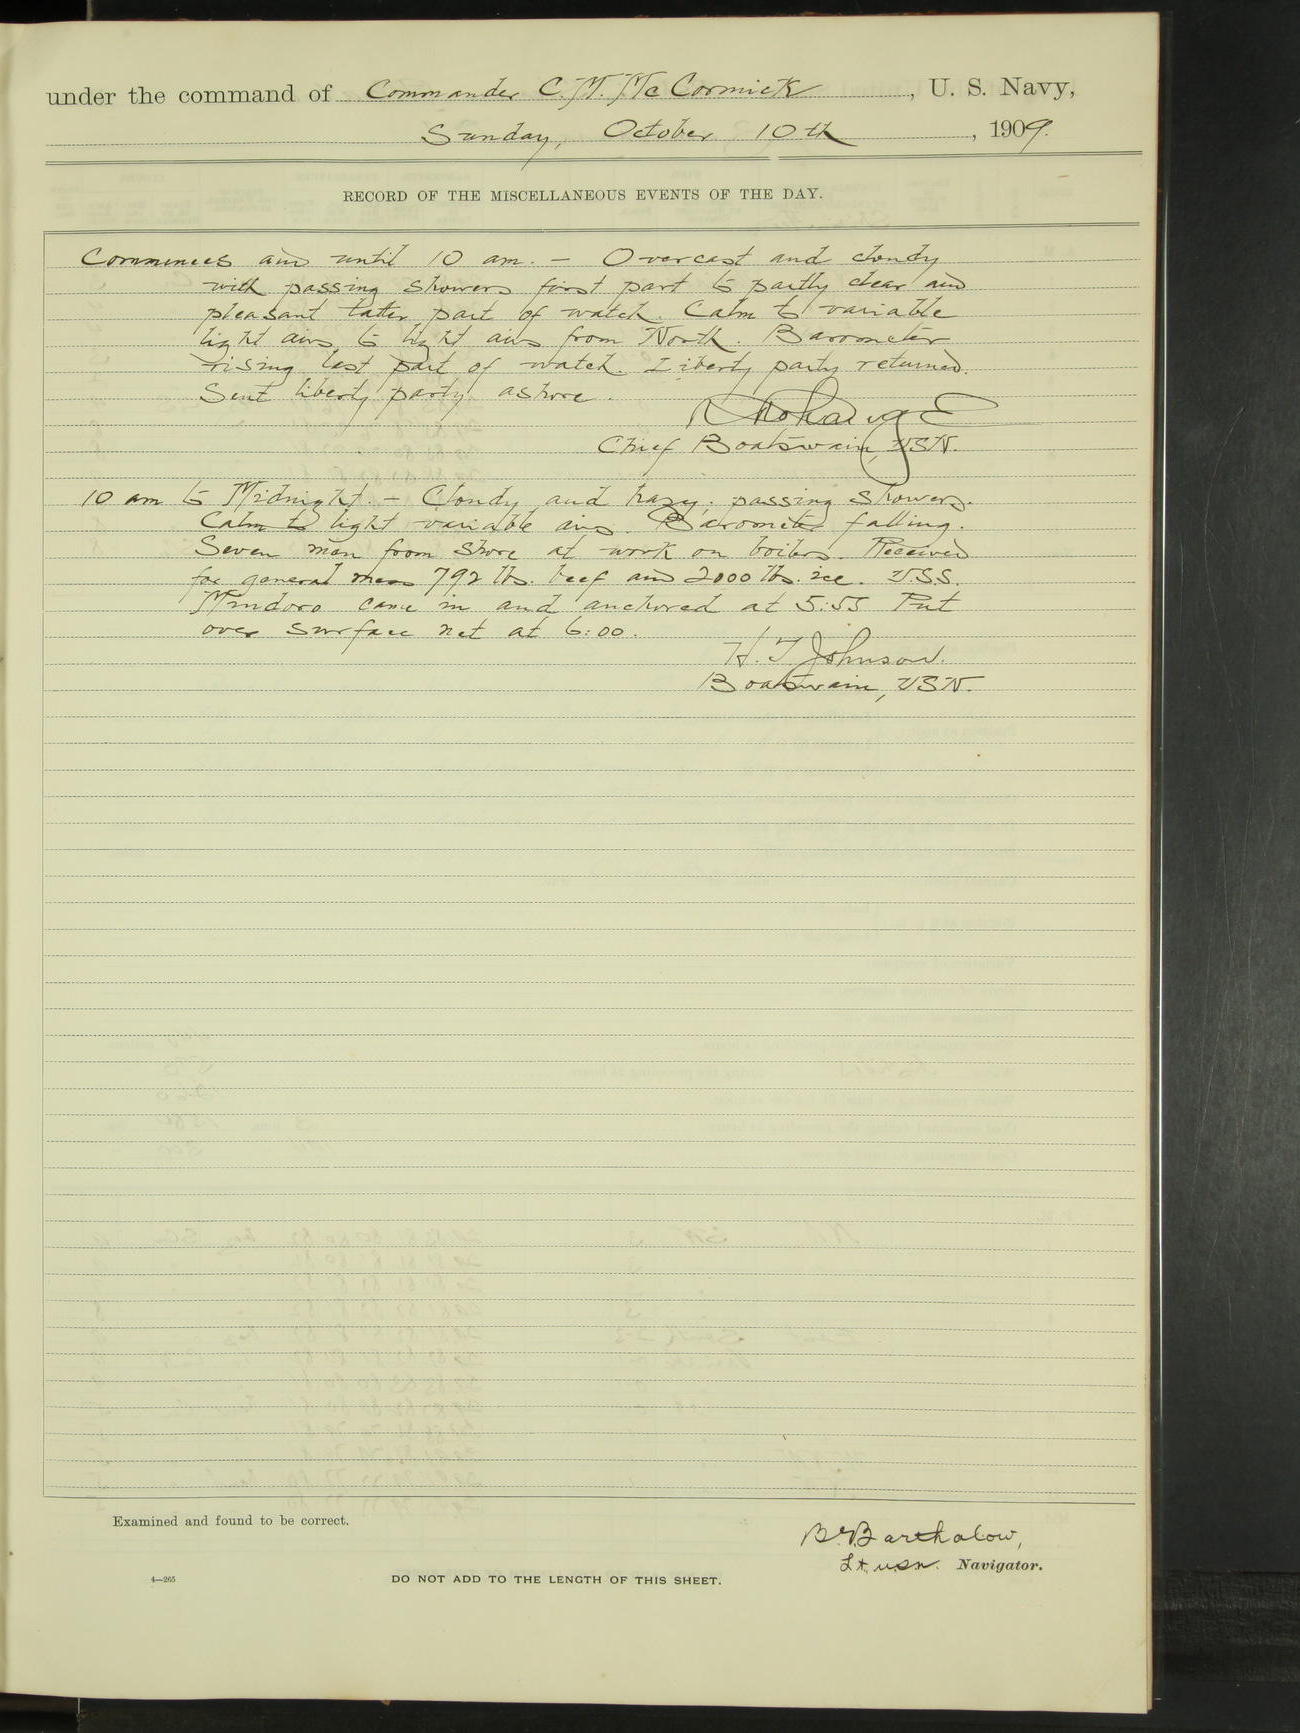 under the command of Commander C. M. McCormick, U. S. Navy,
Sunday, October 10th, 1909.
RECORD OF THE MISCELLANEOUS EVENTS OF THE DAY.
Commences and until 10 am. — Overcast and cloudy
with passing showers first part to partly clear and
pleasant latter part of watch. Calm to variable
light airs to light airs from North. Barometer
rising last part of watch. Liberty party returned.
Sent liberty party ashore.
Chief Boatswain, USN.
10 am to Midnight. — Cloudy and hazy; passing showers.
Calm to light variable airs. Barometer falling.
Seven men from shore at work on boilers. Received
for general mess 792 lbs. beef and 2000 lbs. ice. U.S.S.
Mindoro came in and anchored at 5:55 Put
over surface net at 6:00.
H. T. Johnson.
Boatswain, USN.
Examined and found to be correct.
Barthalow,
Lt. USN. Navigator.
4—265
DO NOT ADD TO THE LENGTH OF THIS SHEET.